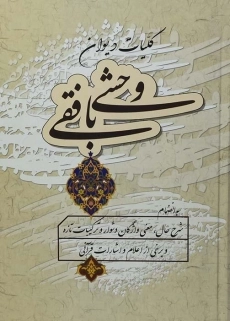 کلیات دیوان
وحشی بافقی
به انضمام
شرح حال، معنی واژگان دشوار و ترکیبات تازه
و برخی از اعلام و اشارات قرآنی